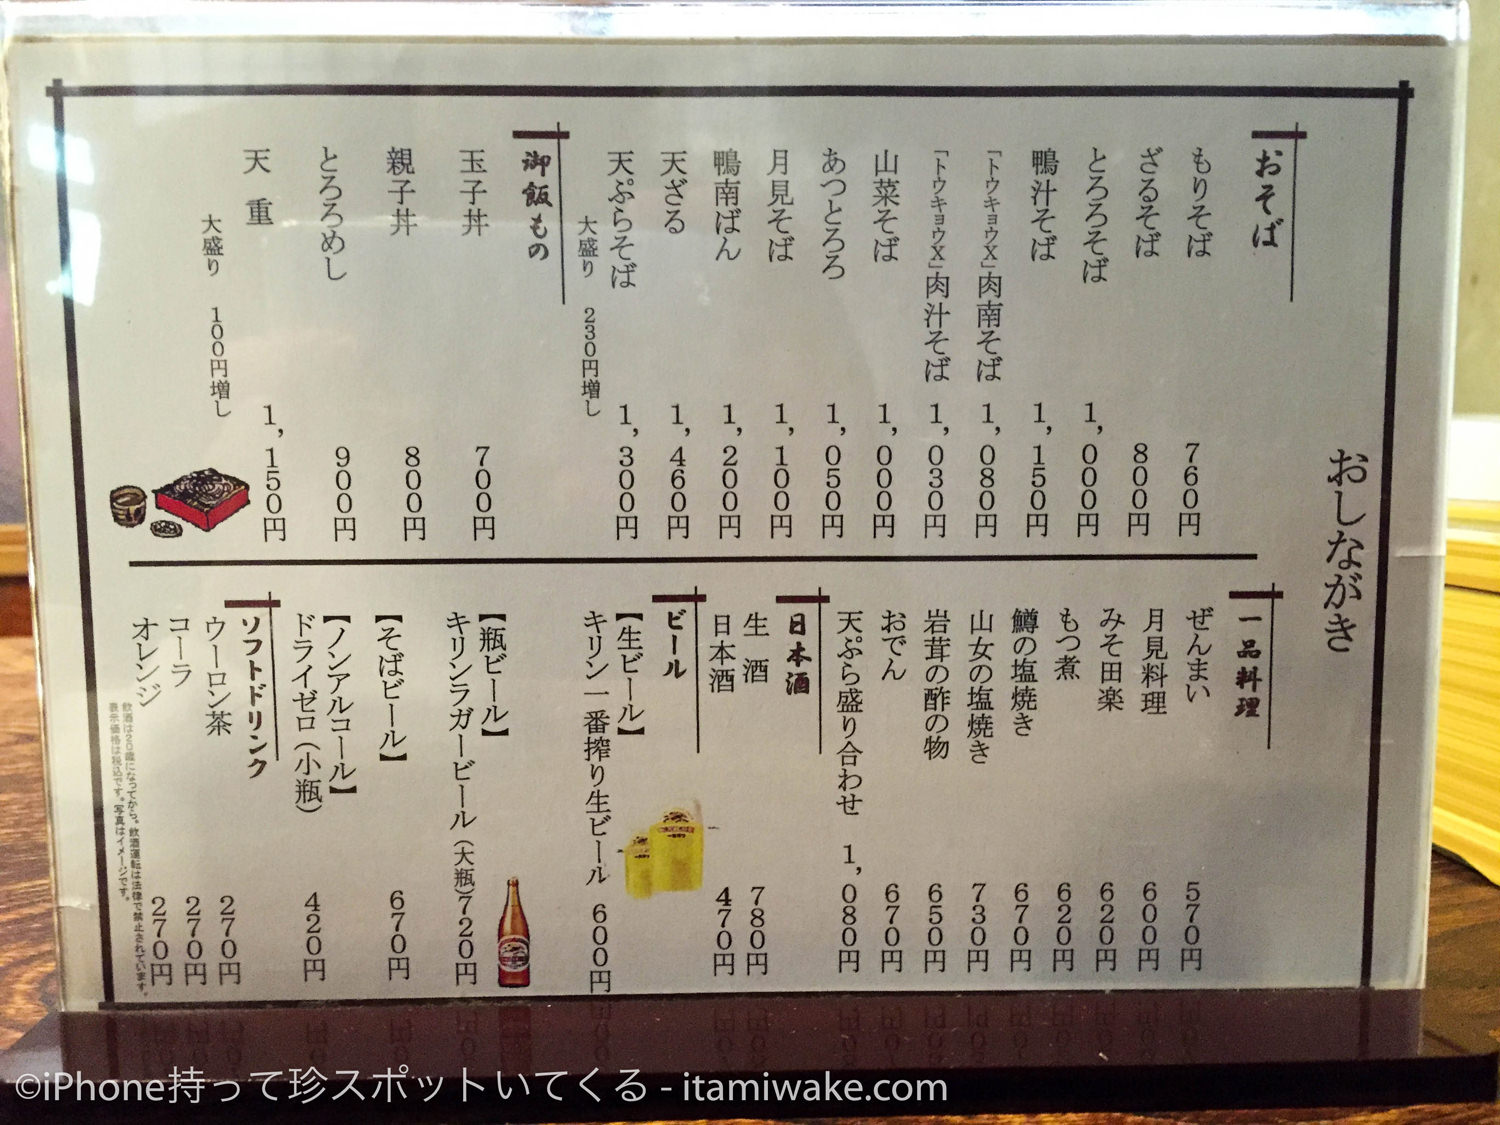 おしながき
おそば
もりそば 760円
ざるそば 800円
とろろそば 1,000円
鴨汁そば 1,150円
「トウキョウX」肉南そば 1,080円
「トウキョウX」肉汁そば 1,030円
山菜そば 1,000円
あつとろろ 1,050円
月見そば 1,100円
鴨南ばん 1,200円
天ざる 1,460円
天ぷらそば 1,300円
大盛り 230円増し
御飯もの
玉子丼 700円
親子丼 800円
とろろめし 900円
天重 1,150円
大盛り 100円増し
一品料理
ぜんまい 570円
月見料理 600円
みそ田楽 620円
もつ煮 620円
鱒の塩焼き 670円
山女の塩焼き 730円
岩茸の酢の物 650円
おでん 670円
天ぷら盛り合わせ 1,080円
日本酒
生酒 780円
日本酒 470円
ビール
【生ビール】
キリン一番搾り生ビール 600円
【瓶ビール】
キリンラガービール(大瓶) 720円
【そばビール】 670円
【ノンアルコール】
ドライゼロ(小瓶) 420円
ソフトドリンク
ウーロン茶 270円
コーラ 270円
オレンジ 270円
飲酒は20歳になってから。飲酒運転は法律で禁止されています。
表示価格は税込です。写真はイメージです。
©iPhone持って珍スポットいてくる - itamiwake.com